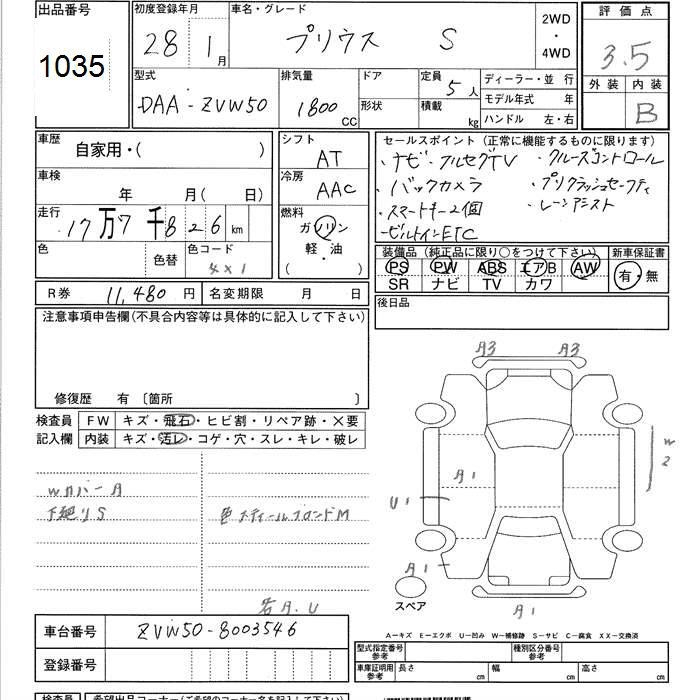 出品番号
1035
初度登録年月
28 1月
車名・グレード
プリウス S
2WD
・
4WD
評価点
3.5
外装 内装
B
型式
DAA-ZVW50
排気量
1800 CC
ドア
形状
定員 5人
積載 kg
ディーラー・並 行
モデル年式 年
ハンドル 左・右
車歴
自家用・( )
車検
年 月( 日)
走行
17万7千826km
色
色替
色コード
4X1
シフト
AT
冷房
AAC
燃料
ガソリン
軽・油
( )
セールスポイント(正常に機能するものに限ります)
・ナビ・フルセグTV ・クルーズコントロール
・バックカメラ ・プリクラッシュセーフティ
・スマートキー2個 ・レーンアシスト
・ビルトインETC
装備品(純正品に限り○をつけて下さい)
PS PW ABS エアB AW
SR ナビ TV カワ
新車保証書
有・無
後日品
R券 11,480円
名変期限 月 日
注意事項申告欄(不具合内容等は具体的に記入して下さい)
修復歴 有 〔箇所 〕
検査員
記入欄
FW キズ・飛石・ヒビ割・リペア跡・×要
内装 キズ・汚レ・コゲ・穴・スレ・キレ・破レ
Wカバー A
下廻りS
色スティールブロンドM
若A.U
A3 A3
A1
U1
W2
A1
A1
スペア
A―キズ E―エクボ U―凹み W―補修跡 S―サビ C―腐食 XX―交換済
車台番号
ZVW50-8003546
登録番号
型式指定番号
参考
種別区分番号
参考
車庫証明用
参考
長さ cm
幅 cm
高さ cm
検査員
希望出品コーナー(ご希望のコーナー名を記入して下さい)